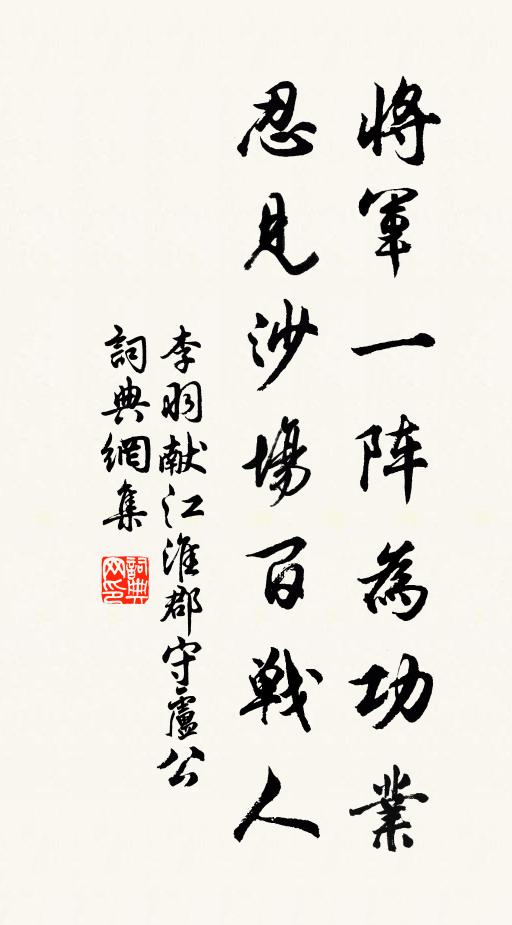 將軍一阵為功業
忍見沙場百戦人
李羽献江淮郡守盧公
詞典網集
詞典
网印